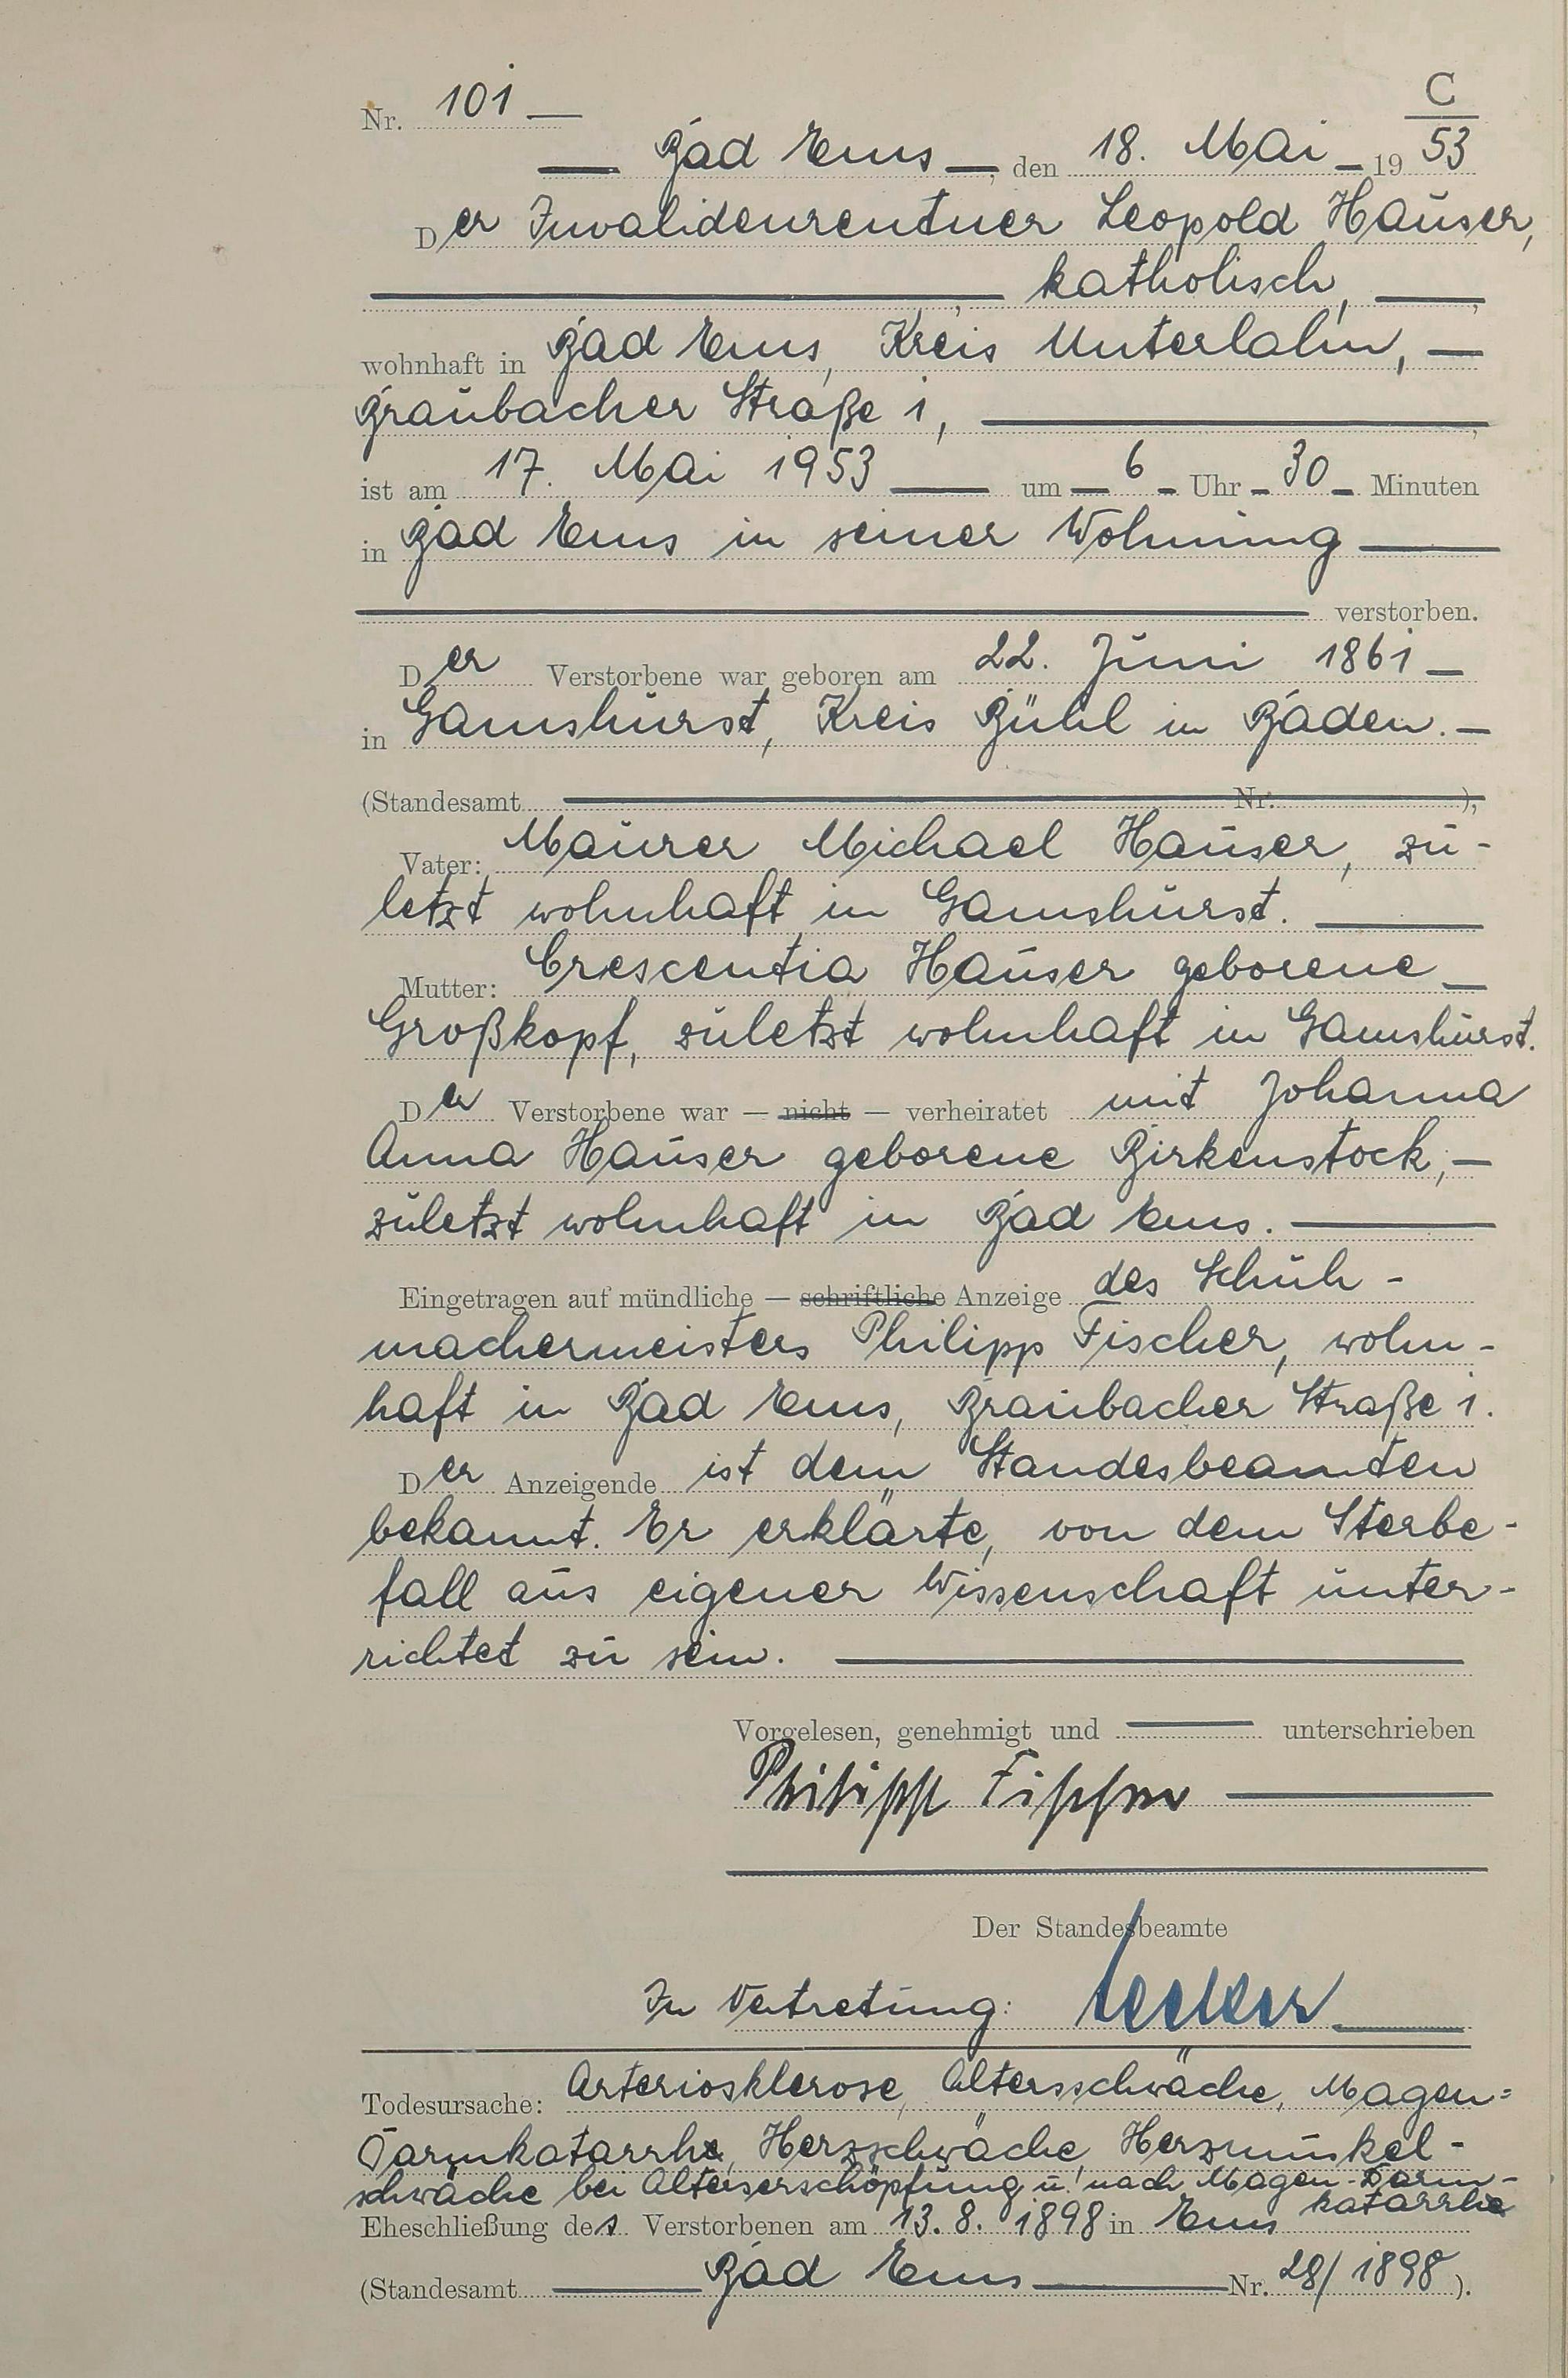 C
Nr. 101 —
— Bad Ems —, den 18. Mai — 19 53
Der Invalidenrentner Leopold Hauser,
—, katholisch, —,
wohnhaft in Bad Ems, Kreis Unterlahn, —
Braubacher Straße 1, —,
ist am 17. Mai 1953 — um — 6 — Uhr — 30 — Minuten
in Bad Ems in seiner Wohnung —
— verstorben.
Der Verstorbene war geboren am 22. Juni 1861 —
in Gamshurst, Kreis Bühl in Baden. —
(Standesamt — Nr. —),
Vater: Maurer Michael Hauser, zu-
letzt wohnhaft in Gamshurst. —
Mutter: Crescentia Hauser geborene —
Großkopf, zuletzt wohnhaft in Gamshurst.
Der Verstorbene war — nicht — verheiratet mit Johanna
Anna Hauser geborene Birkenstock, —
zuletzt wohnhaft in Bad Ems. —
Eingetragen auf mündliche — schriftliche Anzeige des Schuh-
machermeisters Philipp Fischer, wohn-
haft in Bad Ems, Braubacher Straße 1.
Der Anzeigende ist dem Standesbeamten
bekannt. Er erklärte, von dem Sterbe-
fall aus eigener Wissenschaft unter-
richtet zu sein. —
Vorgelesen, genehmigt und — unterschrieben
Philipp Fischer —
Der Standesbeamte
In Vertretung: —
Todesursache: Arteriosklerose, Altersschwäche, Magen=
Darmkatarrhe, Herzschwäche, Herzmuskel-
schwäche bei Alterserschöpfung u. nach Magen-Darm-
katarrhe
Eheschließung des Verstorbenen am 13. 8. 1898 in Ems
(Standesamt — Bad Ems — Nr. 28/1898).